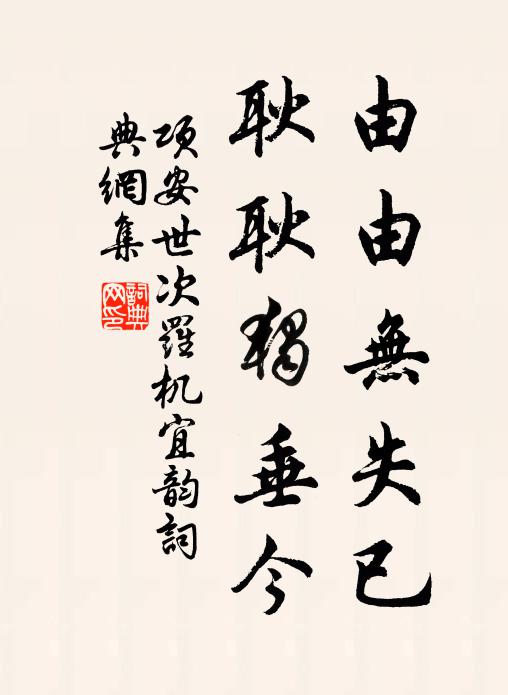 由由無失已
耿耿獨垂今
項安世次羅机宜韵詞
典網集
詞典網印